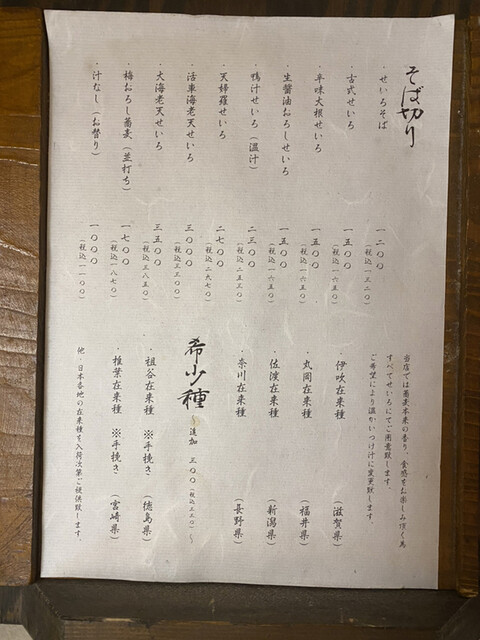 そば切り
・せいろそば 一二〇〇（税込一三二〇）
・古式せいろ 一五〇〇（税込一六五〇）
・辛味大根せいろ 一五〇〇（税込一六五〇）
・生醬油おろしせいろ 一五〇〇（税込一六五〇）
・鴨汁せいろ（温汁） 二三〇〇（税込二五三〇）
・天婦羅せいろ 二七〇〇（税込二九七〇）
・活車海老天せいろ 三〇〇〇（税込三三〇〇）
・大海老天せいろ 三五〇〇（税込三八五〇）
・梅おろし蕎麦（並打ち） 一七〇〇（税込一八七〇）
・汁なし（お替り） 一〇〇〇（税込一一〇〇）
当店では蕎麦本来の香り、食感をお楽しみ頂く為
すべてせいろにてご用意致します。
ご希望により温かいつけ汁に変更致します。
・伊吹在来種 （滋賀県）
・丸岡在来種 （福井県）
・佐渡在来種 （新潟県）
・奈川在来種 （長野県）
希少種 〜追加 三〇〇（税込三三〇）〜
・祖谷在来種 ※手挽き （徳島県）
・椎葉在来種 ※手挽き （宮崎県）
他、日本各地の在来種を入荷次第ご提供致します。